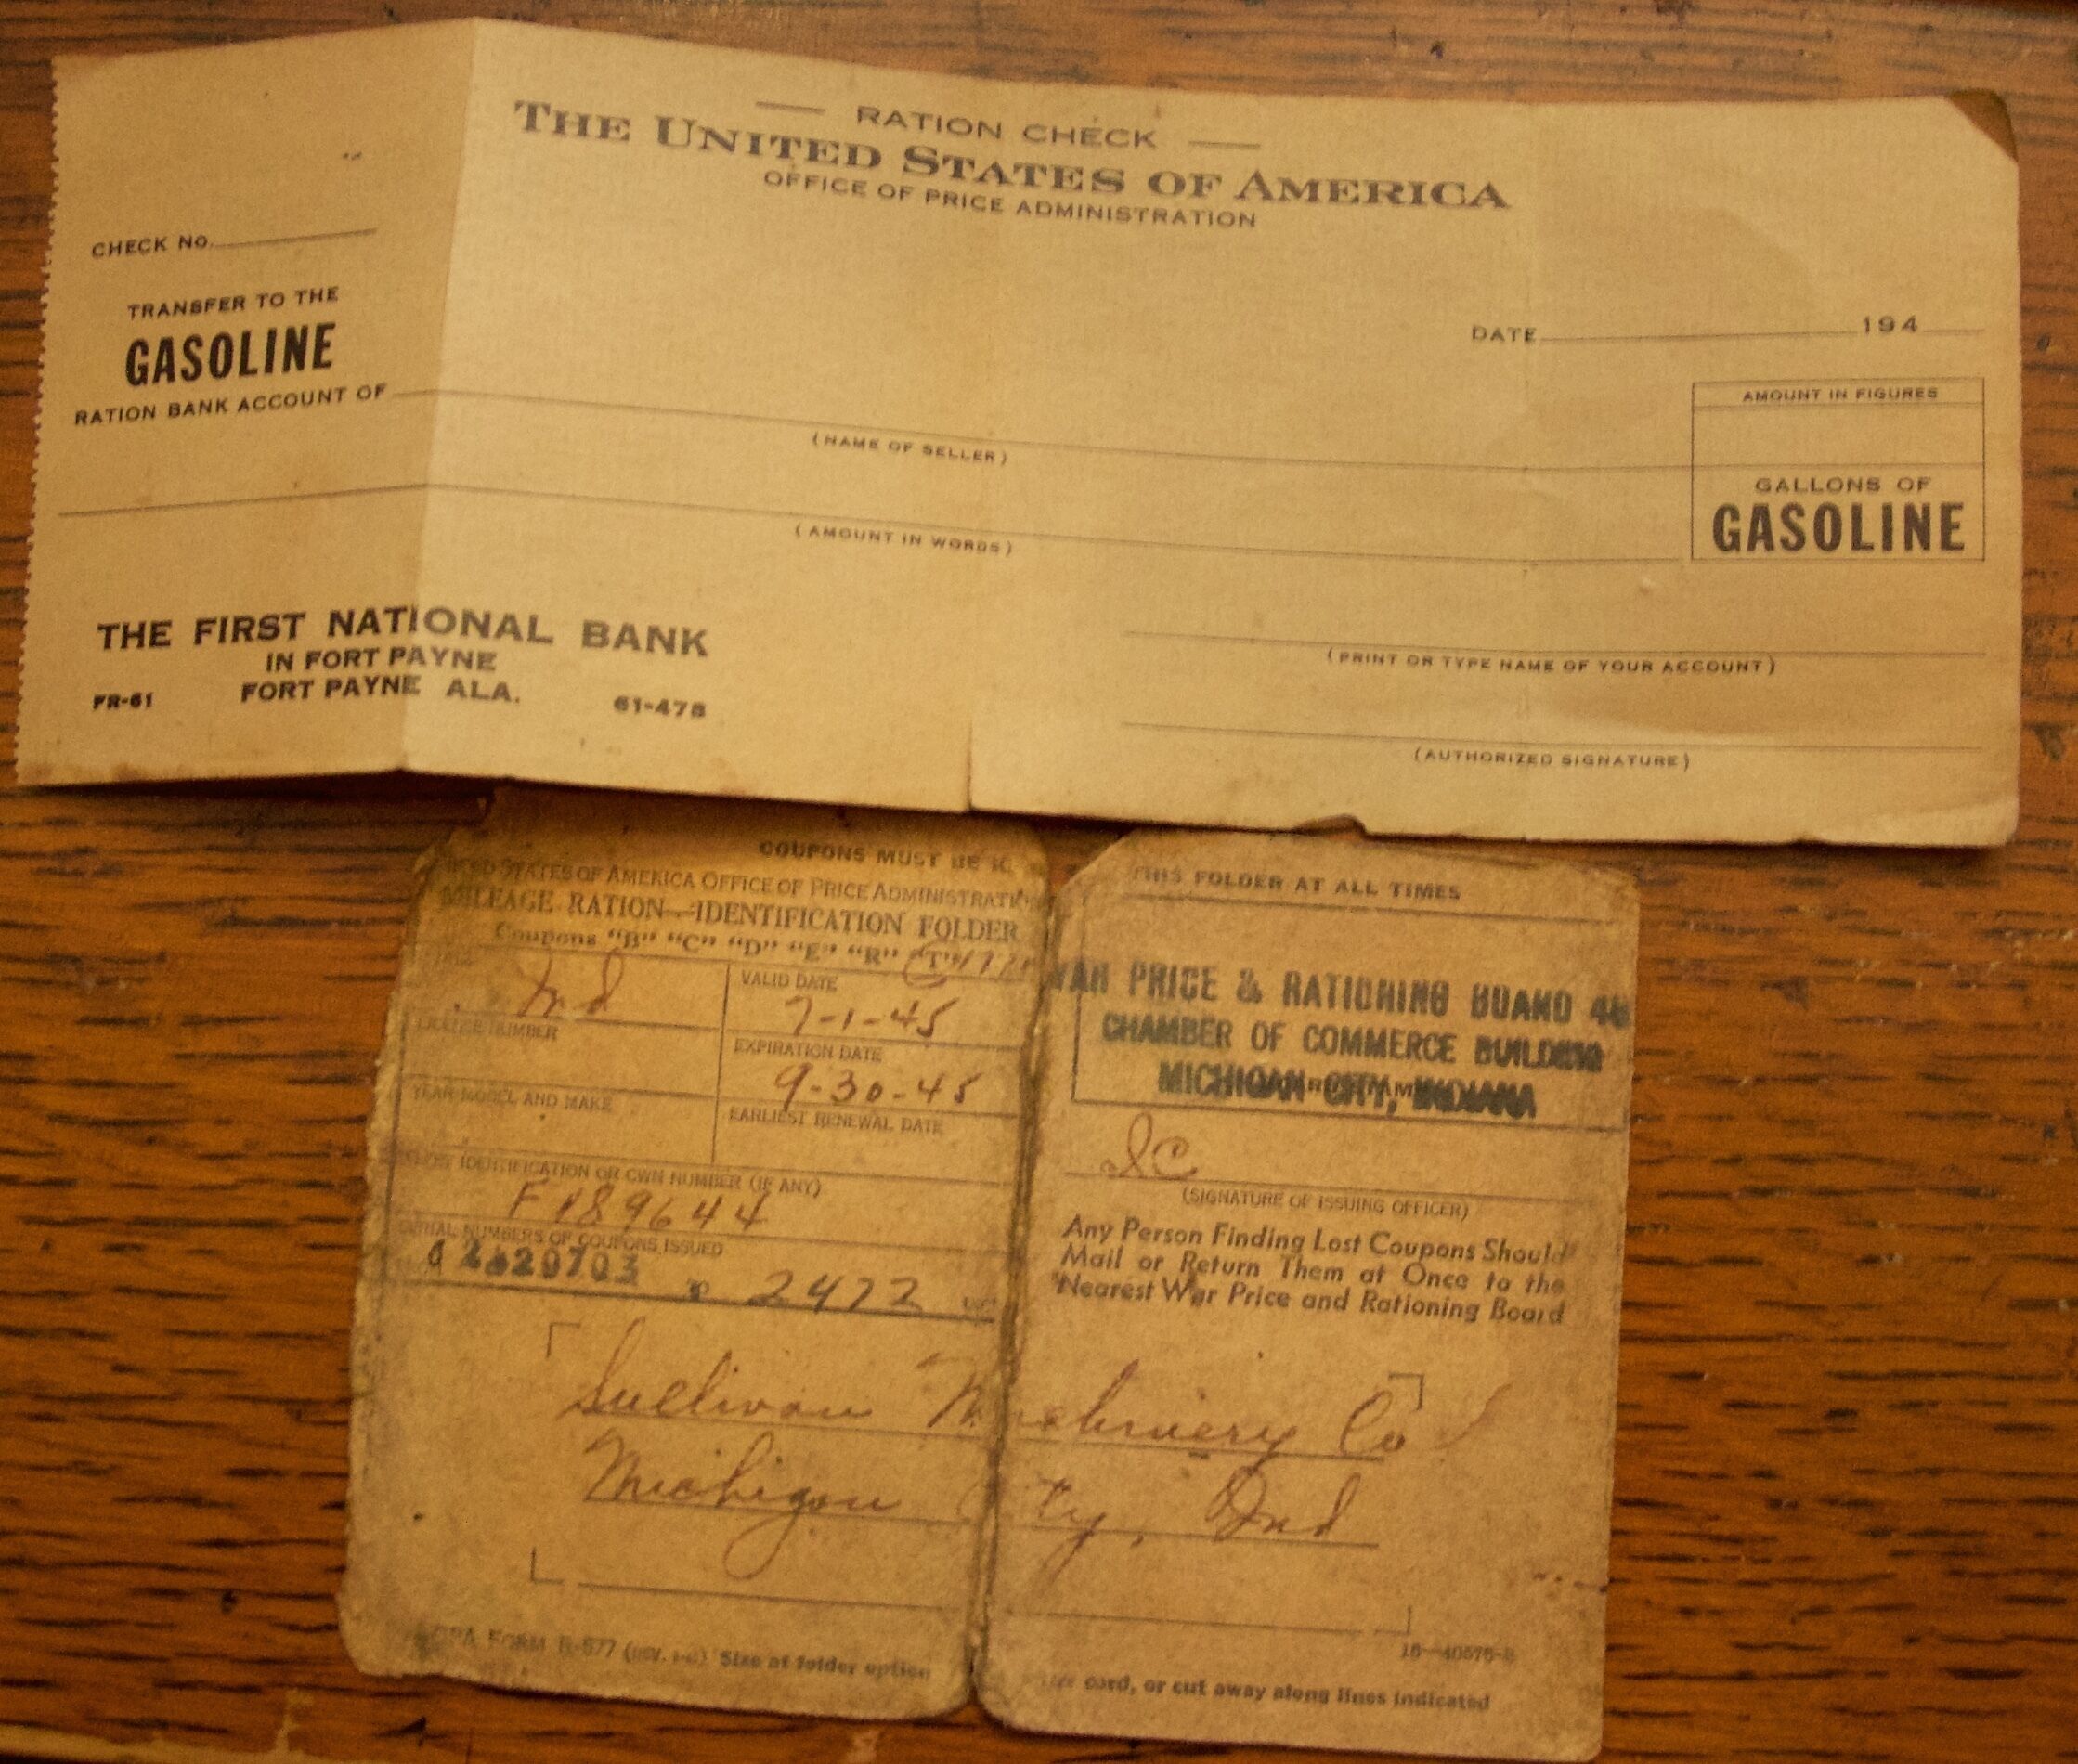 RATION CHECK
THE UNITED STATES OF AMERICA
OFFICE OF PRICE ADMINISTRATION
CHECK No.
DATE 194
TRANSFER TO THE
GASOLINE
RATION BANK ACCOUNT OF
(NAME OF SELLER)
AMOUNT IN FIGURES
GALLONS OF
GASOLINE
(AMOUNT IN WORDS)
THE FIRST NATIONAL BANK
IN FORT PAYNE
FORT PAYNE ALA.
FR-61 61-478
(PRINT OR TYPE NAME OF YOUR ACCOUNT)
(AUTHORIZED SIGNATURE)
COUPONS MUST BE
STATES OF AMERICA OFFICE OF PRICE ADMINISTRATION
MILEAGE RATION—IDENTIFICATION FOLDER
Coupons "B" "C" "D" "E" "R" "T"
Ind
VALID DATE
7-1-45
LICENSE NUMBER
EXPIRATION DATE
9-30-45
YEAR MODEL AND MAKE
EARLIEST RENEWAL DATE
IDENTIFICATION OR CWN NUMBER (IF ANY)
F189644
SERIAL NUMBERS OF COUPONS ISSUED
2620703 2472
THIS FOLDER AT ALL TIMES
WAR PRICE & RATIONING BOARD 46
CHAMBER OF COMMERCE BUILDING
MICHIGAN CITY, INDIANA
(SIGNATURE OF ISSUING OFFICER)
Any Person Finding Lost Coupons Should
Mail or Return Them at Once to the
Nearest War Price and Rationing Board
Sullivan Machinery Co
Michigan City, Ind
OPA FORM R-577 Size of folder option
16—40576-3
card, or cut away along lines indicated